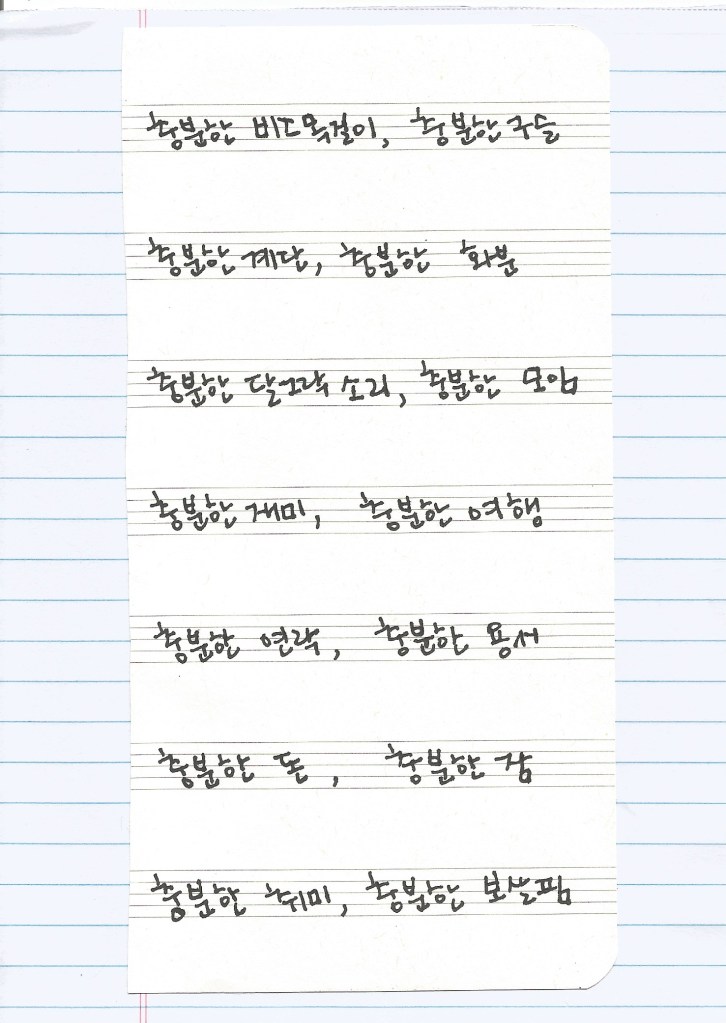 충분한 비드목걸이, 충분한 구슬
충분한 계단, 충분한 화분
충분한 달그락 소리, 충분한 모임
충분한 재미, 충분한 여행
충분한 연락, 충분한 용서
충분한 돈, 충분한 잠
충분한 취미, 충분한 보살핌